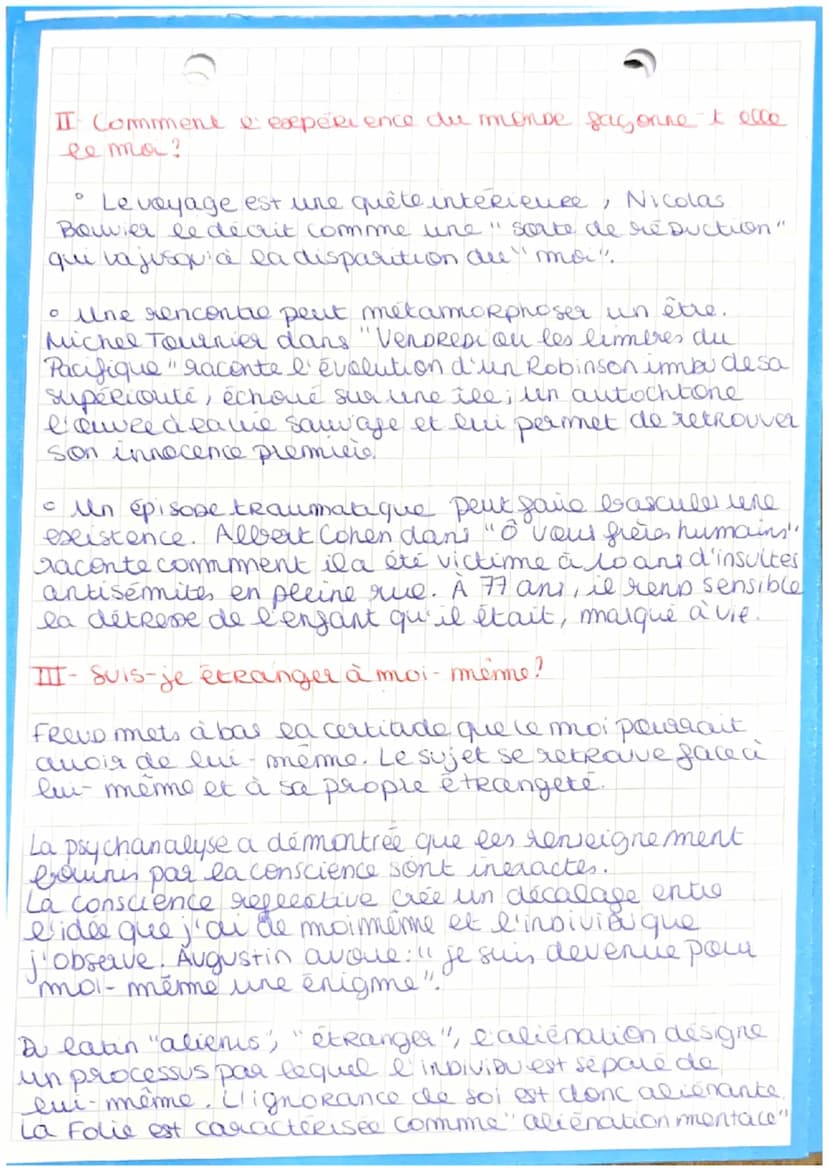 II- Comment l'expérience du monde façonne-t elle
le moi?
° Le voyage est une quête intérieure, Nicolas
Bouvier le décrit comme une "sorte de réduction"
qui va jusqu'à la disparition du "moi".
° Une rencontre peut métamorphoser un être.
Michel Tournier dans "Vendredi ou les limbes du
Pacifique" raconte l'évolution d'un Robinson imbu de sa
supériorité, échoué sur une île; un autochtone
l'ouvre à la vie sauvage et lui permet de retrouver
son innocence première.
° Un épisode traumatique peut faire basculer une
existence. Albert Cohen dans "Ô vous frères humains"
raconte commment il a été victime à 10 ans d'insultes
antisémites en pleine rue. À 77 ans, il rend sensible
la détresse de l'enfant qu'il était, marqué à vie.
III- Suis-je étranger à moi-même?
Freud mets à bas la certiude que le moi pourrait
avoir de lui-même. Le sujet se retrouve face à
lui-même et à sa propre étrangeté.
La psychanalyse a démontrée que les renseignement
fournis par la conscience sont inexactes.
La conscience réflective crée un décalage entre
l'idée que j'ai de moi même et l'individu que
j'observe. Augustin avoue: "je suis devenue pour
moi-même une énigme".
Du latin "alienus", "étranger", l'aliénation désigne
un processus par lequel l'individu est séparé de
lui-même. L'ignorance de soi est donc aliénante.
La Folie est caractérisée comme "aliénation mentale"